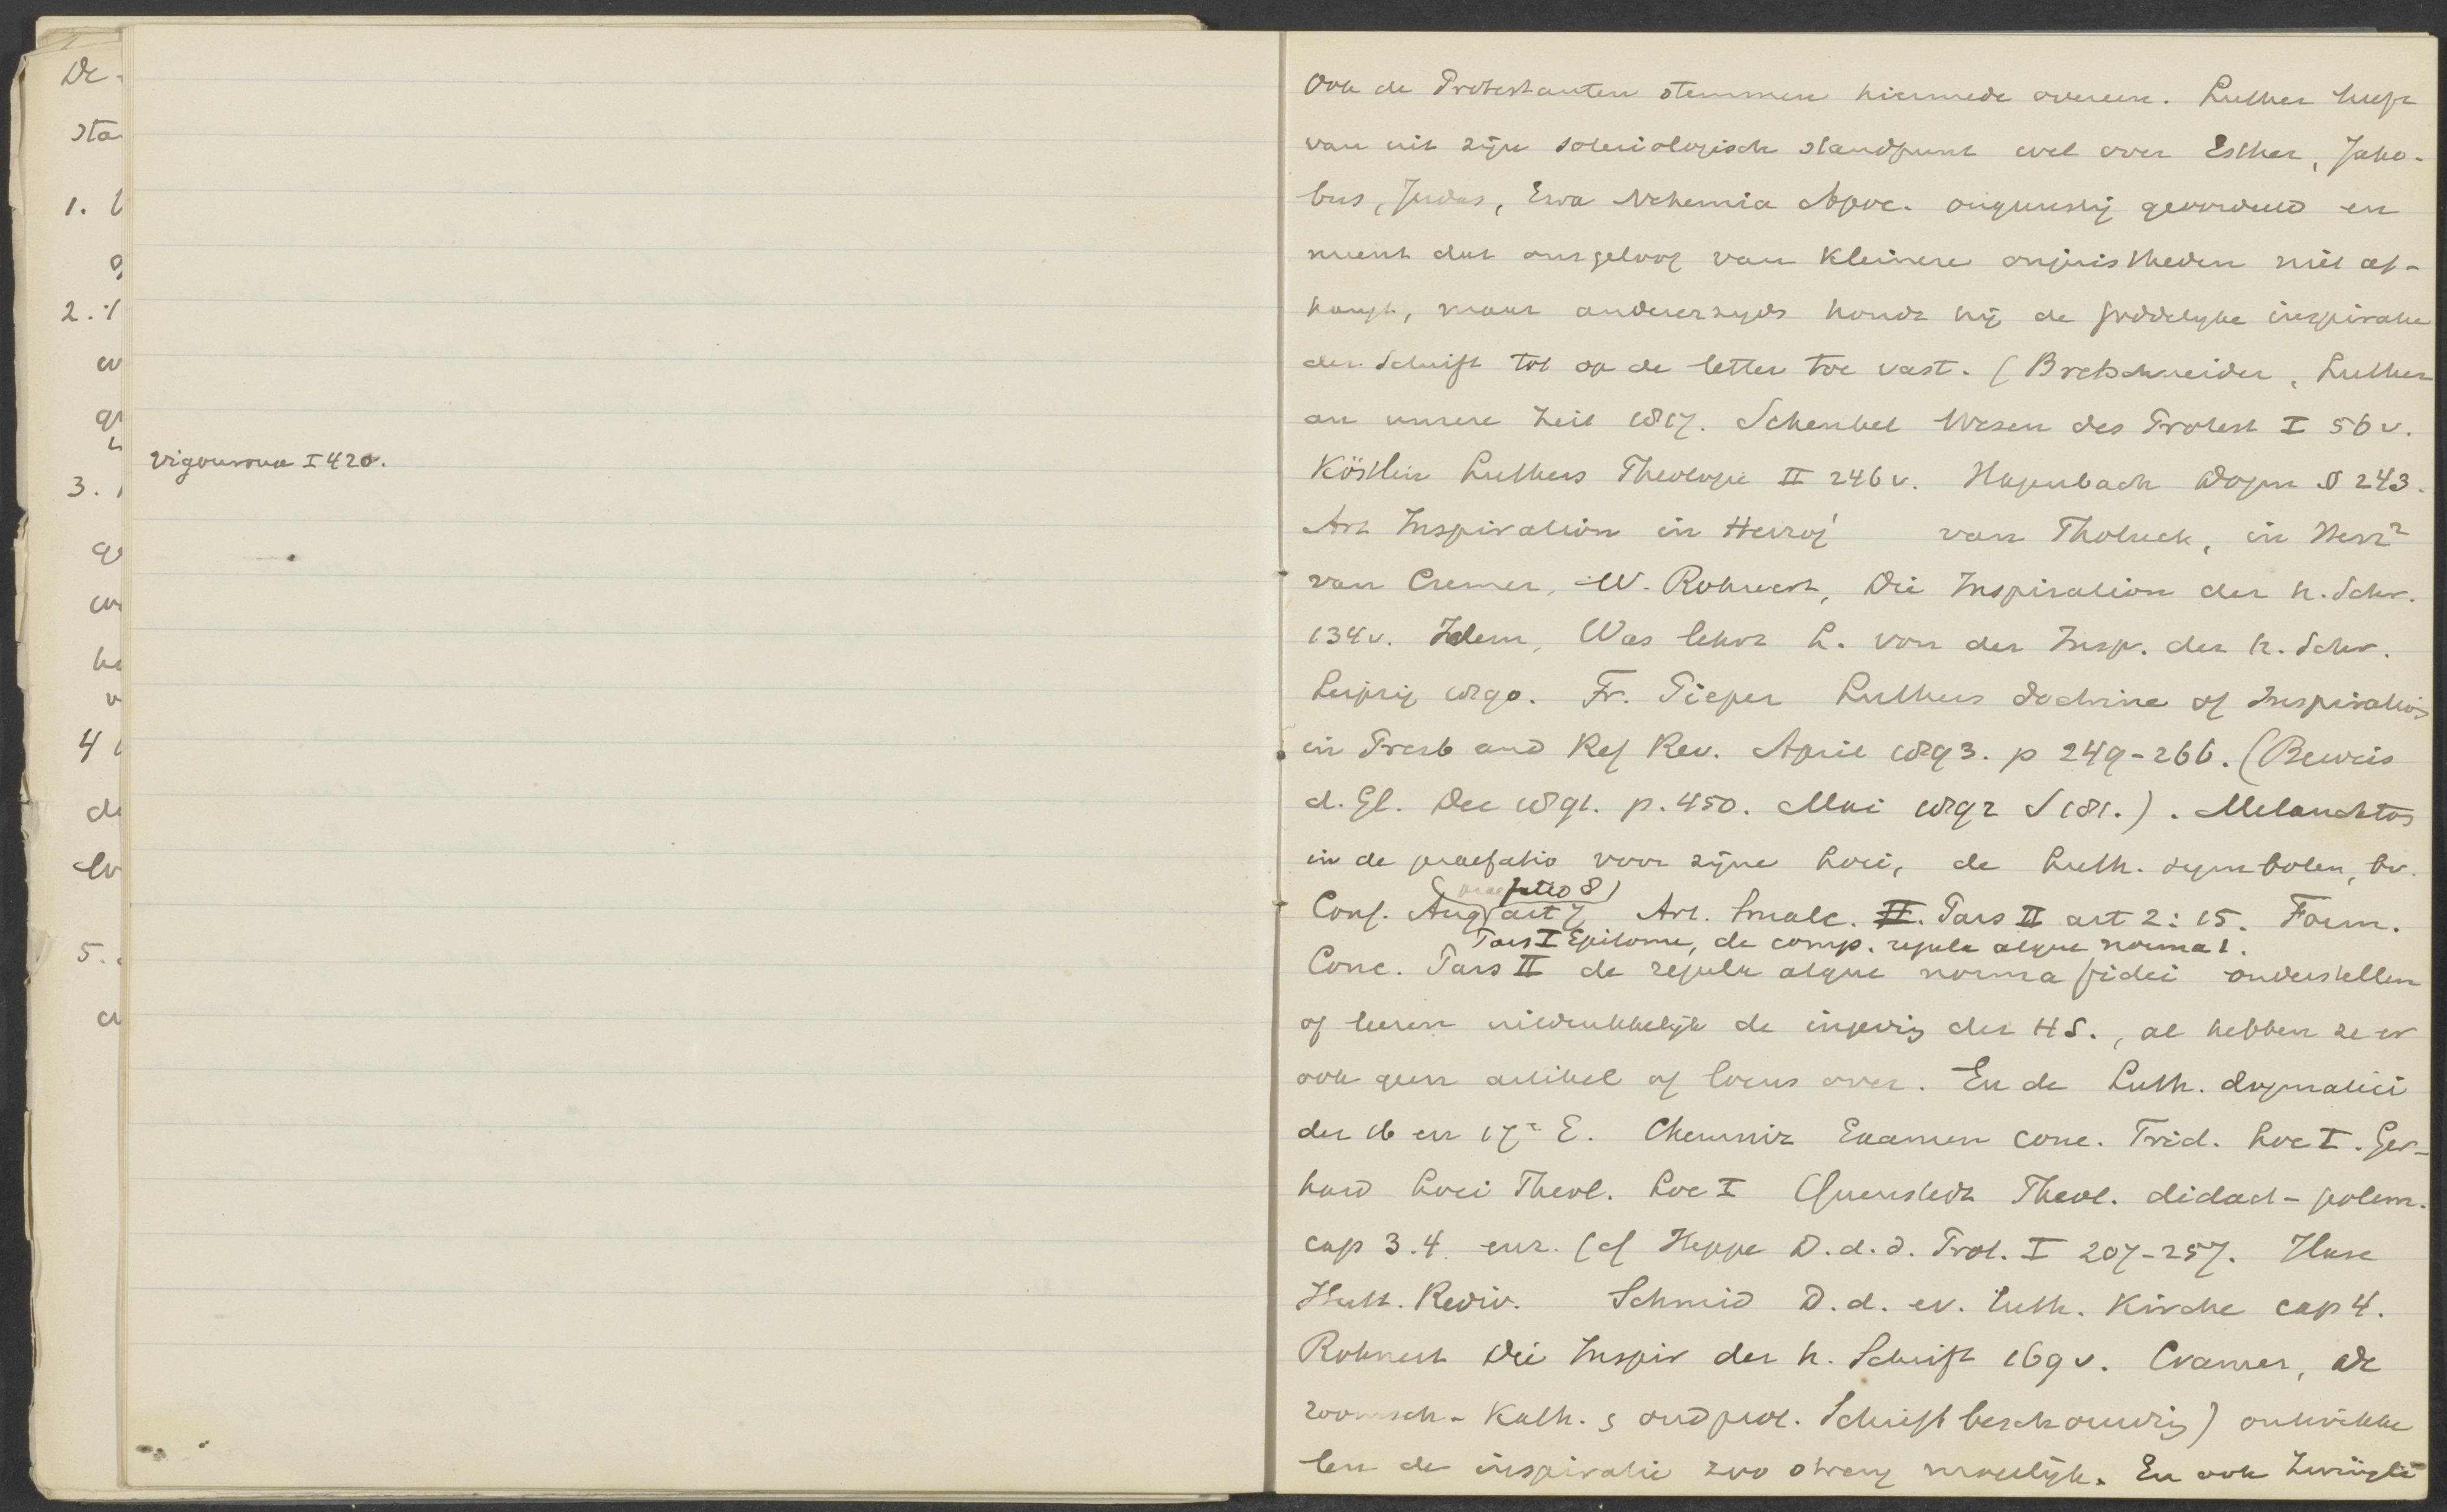 De
sta
1.
2.
3.
4
5.
Vigouroux I 420.
Ook de Protestanten stemmen hiermede overeen. Luther heeft
van uit zijn soteriologisch standpunt wel over Esther, Jako-
bus, Judas, Esra Nehemia Apoc. ongunstig geoordeeld en
meent dat ons geloof van kleinere onjuistheden niet af-
hangt, maar andererzyds houdt hij de goddelyke inspiratie
der Schrift tot op de letter toe vast. (Bretschneider, Luther
an unsere Zeit 1817. Schenkel Wesen des Protest I 56 v.
Köstlin Luthers Theologie II 246 v. Hagenbach Dogm § 243.
Art Inspiration in Herzog¹ van Tholuck, in Herz²
van Cremer, W. Rohnert, Die Inspiration der h. Schr.
134 v. Idem, Was lehrt L. von der Insp. der h. Schr.
Leipzig 1890. Fr. Pieper Luthers doctrine of Inspiration
in Presb and Ref Rev. April 1893. p 249-266. (Beweis
d. Gl. Dec 1891. p. 450. Mai 1892 S 181.). Melanchton
in de praefatio voor zijne Loci, de Luth. symbolen, bv.
(praefatio 8)
Conf. Aug art 7 Art. Smalc. II. Pars II art 2: 15. Form.
Pars I Epitome, de comp. regula atque norma 1.
Conc. Pars II de regula atque norma fidei onderstellen
of leeren uitdrukkelijk de ingeving der HS., al hebben ze er
ook geen artikel of locus over. En de Luth. dogmatici
der 16 en 17e E. Chemniz Examen conc. Trid. Loc I. Ger-
hard Loci Theol. Loc I Quenstedt Theol. didact-polem.
cap 3.4. enz. (cf Heppe D. d. d. Prot. I 207-257. Hase
Hutt. Rediv. Schmid D. d. ev. luth. Kirche cap 4.
Rohnert Die Inspir der h. Schrift 169 v. Cramer, De
roomsch-Kath. & oudprot. Schriftbeschouwing) ontwikke
len de inspiratie zoo streng mogelijk. En ook Zwingli